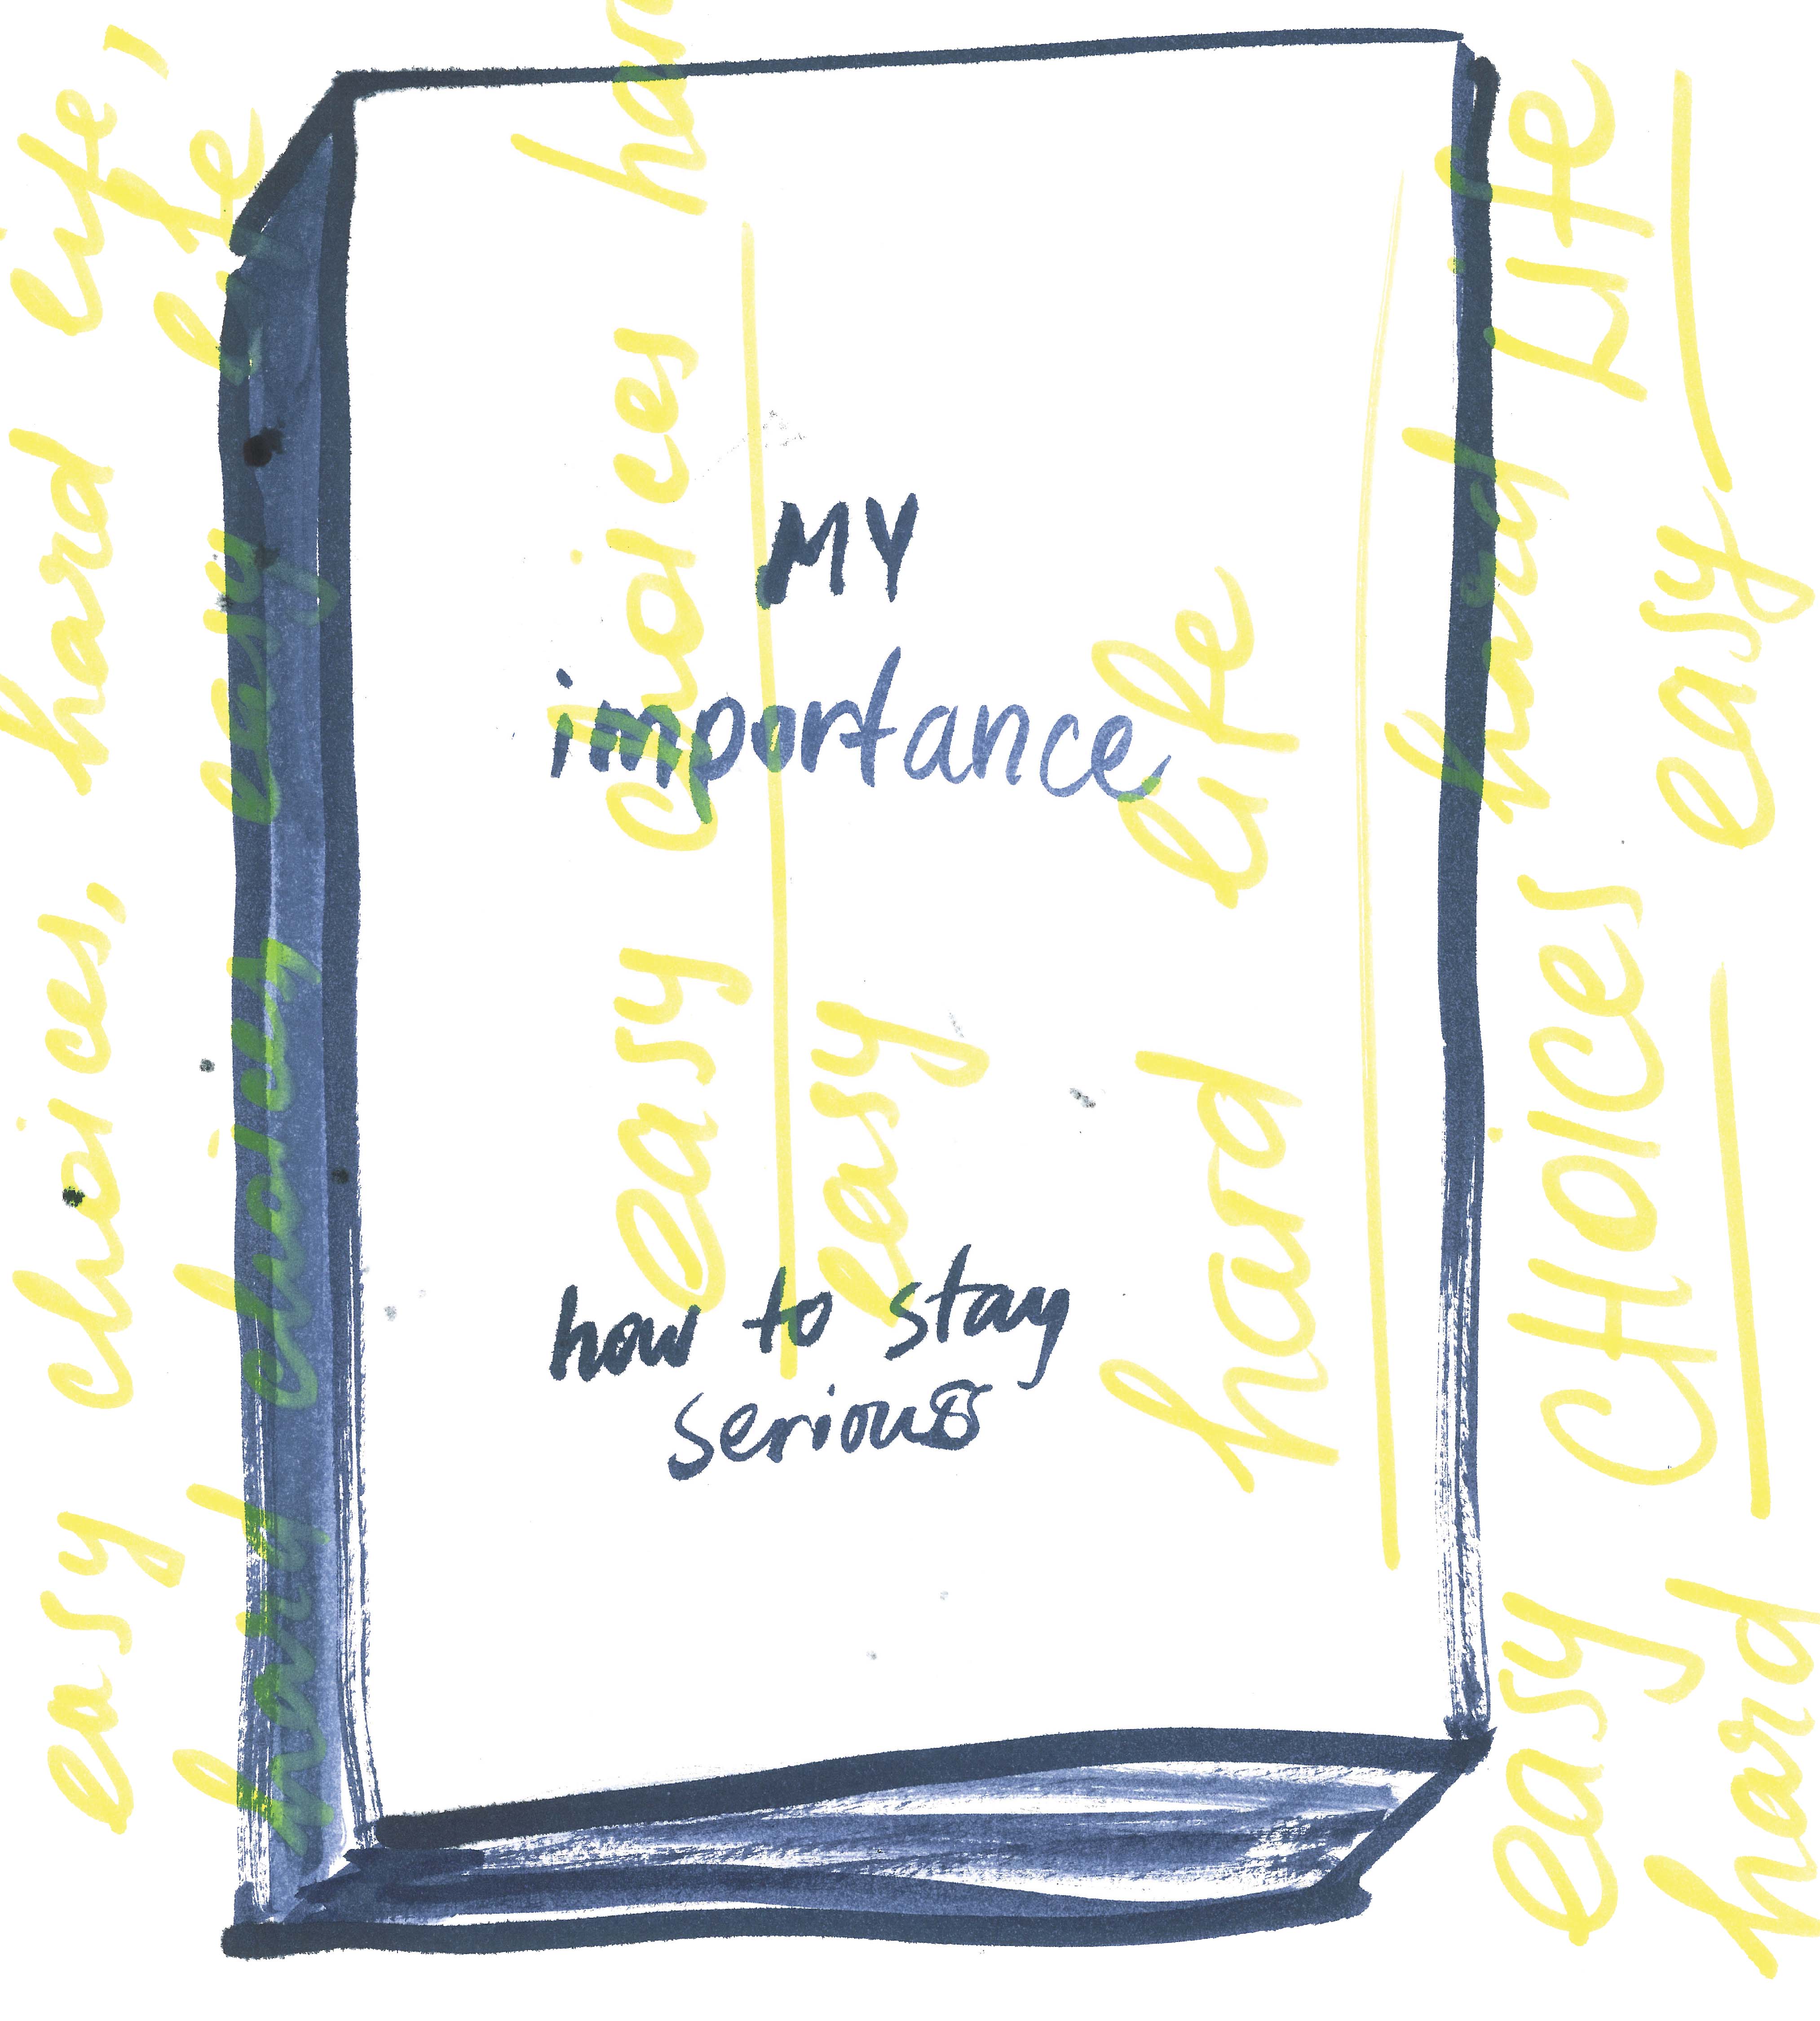 MY
importance
how to stay
serious
easy choices, hard life,
hard choices easy life
easy choices
easy
hard life
easy CHOICES hard LIFE
hard easy